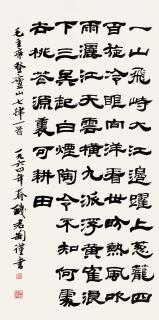 一山飛峙大江邊躍上蔥蘢四
百旋冷眼向洋看世界熱風吹
雨灑江天雲橫九派浮黃隺浪
下三吳起白煙陶令不知何處
去桃花源裏可耕田
毛主席登廬山七律一首 一九六四年春 書